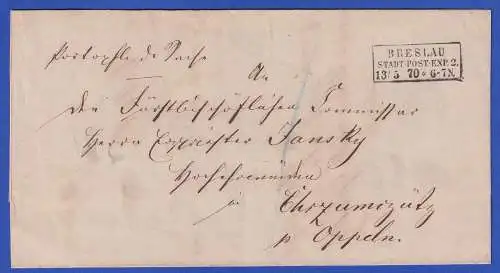 Portopfl. d. Sache
BRESLAU
STADT-POST-EXP. 2.
13/5 70 * 6-7N.
An
den Fürstbischöflichen Commissar
Herrn Erzpriester Jansky
Hochehrwürden
in
Chrzumczütz
p Oppeln.